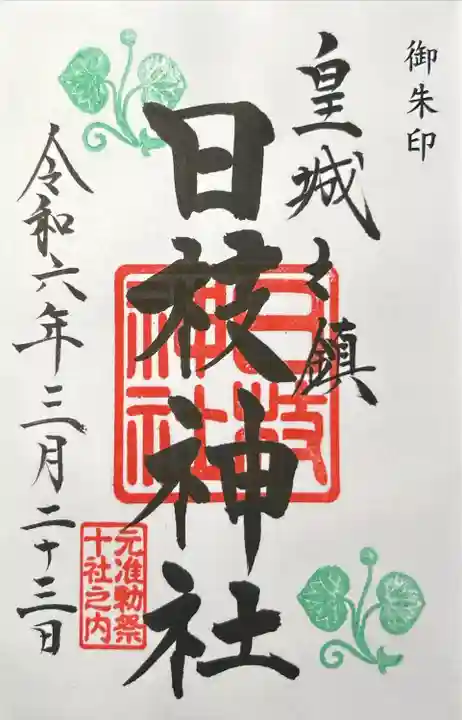 御朱印
皇城之鎮
日枝神社
日枝
神社
令和六年三月二十三日
元准勅祭
十社之内